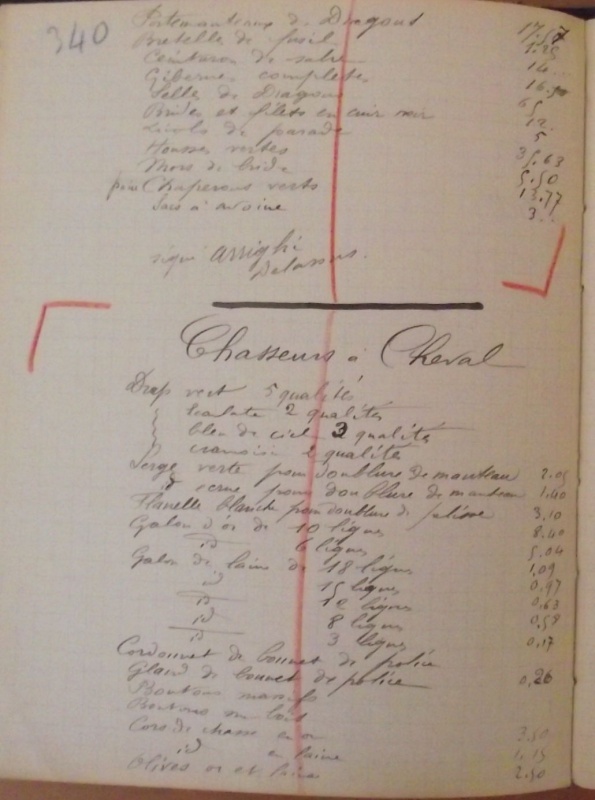 340
Portemanteaux de Dragons 17.57
Bretelle de fusil 1.25
Ceinturon de sabre 14...
Gibernes complettes 16.50
Selles de Dragons 65
Brides et filets en cuir noir 12.
Licols de parade 5
Housses vertes 35.63
Mors de bride 5.50
Chaperons verts 13.77
Sacs à avoine 3..
signé Arrighi
Delassus.
Chasseurs à Cheval
Drap vert 5 qualités
écalate 2 qualités
bleu de ciel 3 qualités
cramoisi 2 qualités
Serge verte pour doublure de manteau 2.05
id pour doublure de manteau 1.40
Flanelle blanche pour doublure de pelisse 3.10
Galon d'or de 10 lignes 8.40
id 6 lignes 5.04
Galon de laine de 18 lignes 1,09
15 lignes 0,97
id 12 lignes 0,63
id 8 lignes 0,58
id 3 lignes 0,17
Cordonnet de bonnet de police
Gland de bonnet de police 0,26
Boutons massifs
Boutons sur bois
Cors de chasse en or 3.50
id en laine 1.15
Olives or et laine 2.50